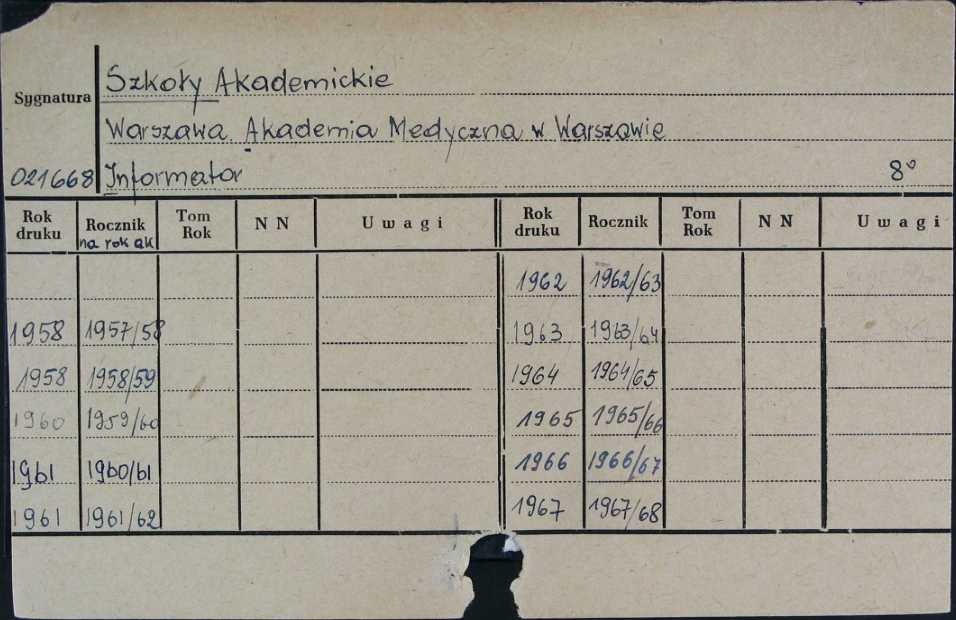 Szkoły Akademickie
Sygnatura
Warszawa. Akademia Medyczna w Warszawie
021668 Informator 8°
Rok druku Rocznik na rok ak Tom Rok N N Uwagi Rok druku Rocznik Tom Rok N N Uwagi
1962 1962/63
1958 1957/58 1963 1963/64
1958 1958/59 1964 1964/65
1960 1959/60 1965 1965/66
1961 1960/61 1966 1966/67
1961 1961/62 1967 1967/68